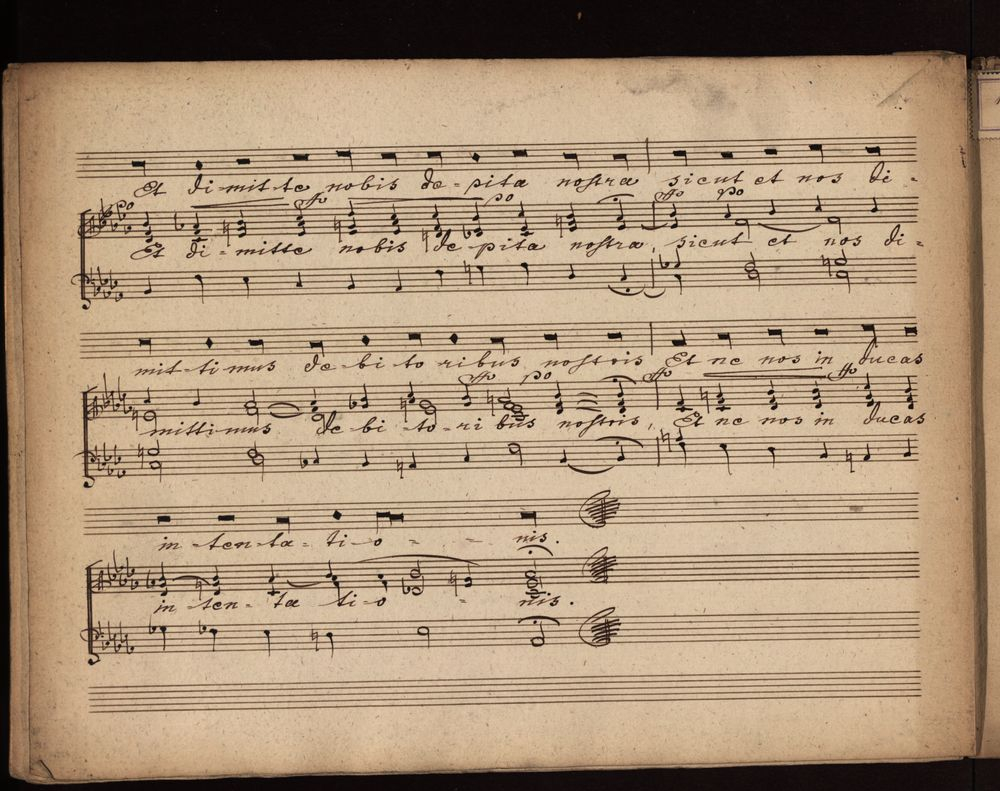 Et di-mit-te nobis de-pita nostra sicut et nos di-
po fp po fp po
Et di-mitte nobis de pita nostra, sicut et nos di-
mit-ti-mus de-bi-to-ribus nostris Et ne nos in ducas
fp po fp fp
mittimus de-bi-to-ri bus nostris, Et ne nos in ducas
in-ten-ta-ti-o - - nis.
in-ten-ta ti-o - nis.